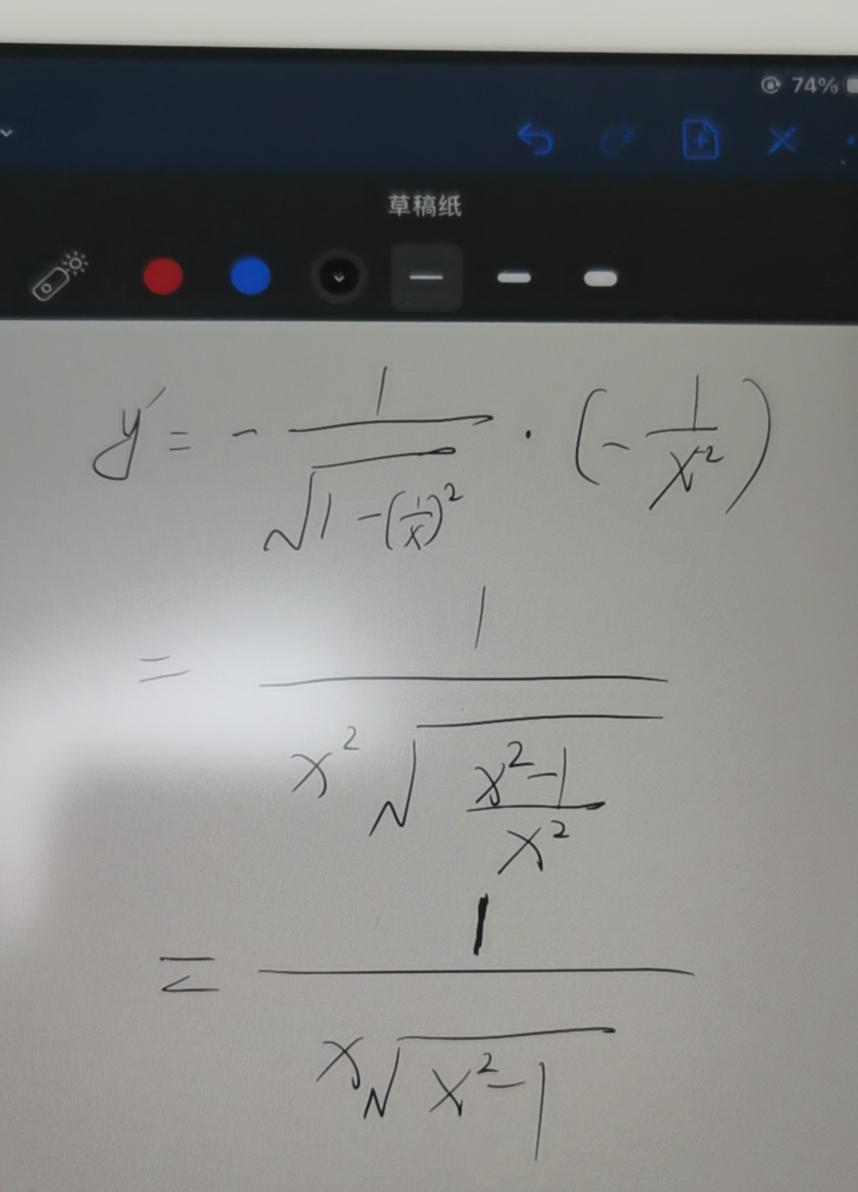 74%
草稿纸
y' = - 1/√(1-(1/x)²) · (- 1/x²)
= 1/(x² √((x²-1)/x²))
= 1/(x√(x²-1))